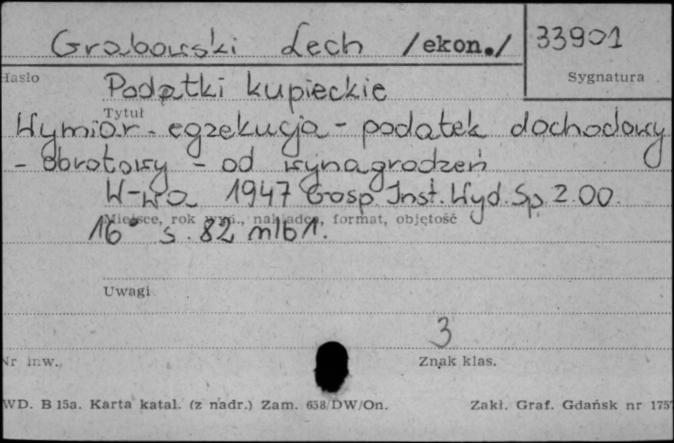 Grabowski Lech /ekon./ 33901
Hasło Sygnatura
Podatki kupieckie
Tytuł
Wymiar - egzekucja - podatek dochodowy
- obrotowy - od wynagrodzeń
W-wa 1947 Gosp. Inst. Wyd. Sp. z o.o.
Miejsce, rok wyd., nakładca, format, objętość
16° s. 82 nlb 1.
Uwagi
3
Nr inw. Znak klas.
WD. B 15a. Karta katal. (z nadr.) Zam. 658/DW/On. Zakł. Graf. Gdańsk nr 175